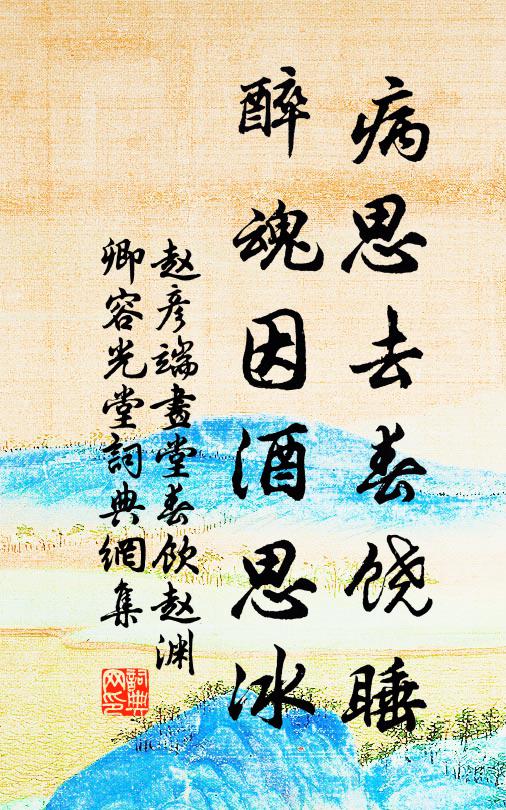 病思去春饶睡
醉魂因酒思冰
赵彦端画堂春饮赵渊
卿容光堂詞典網集
詞典網印